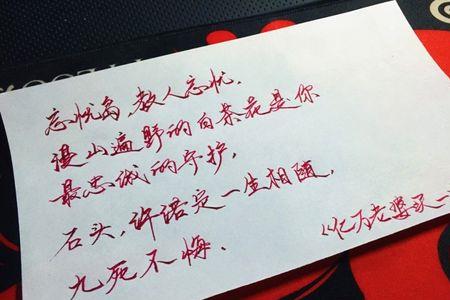 忘忧岛,教人忘忧.
漫山遍野的白茶花是你
最忠诚的守护.
石头,许诺定一生相随.
九死不悔.
《亿万老婆买一